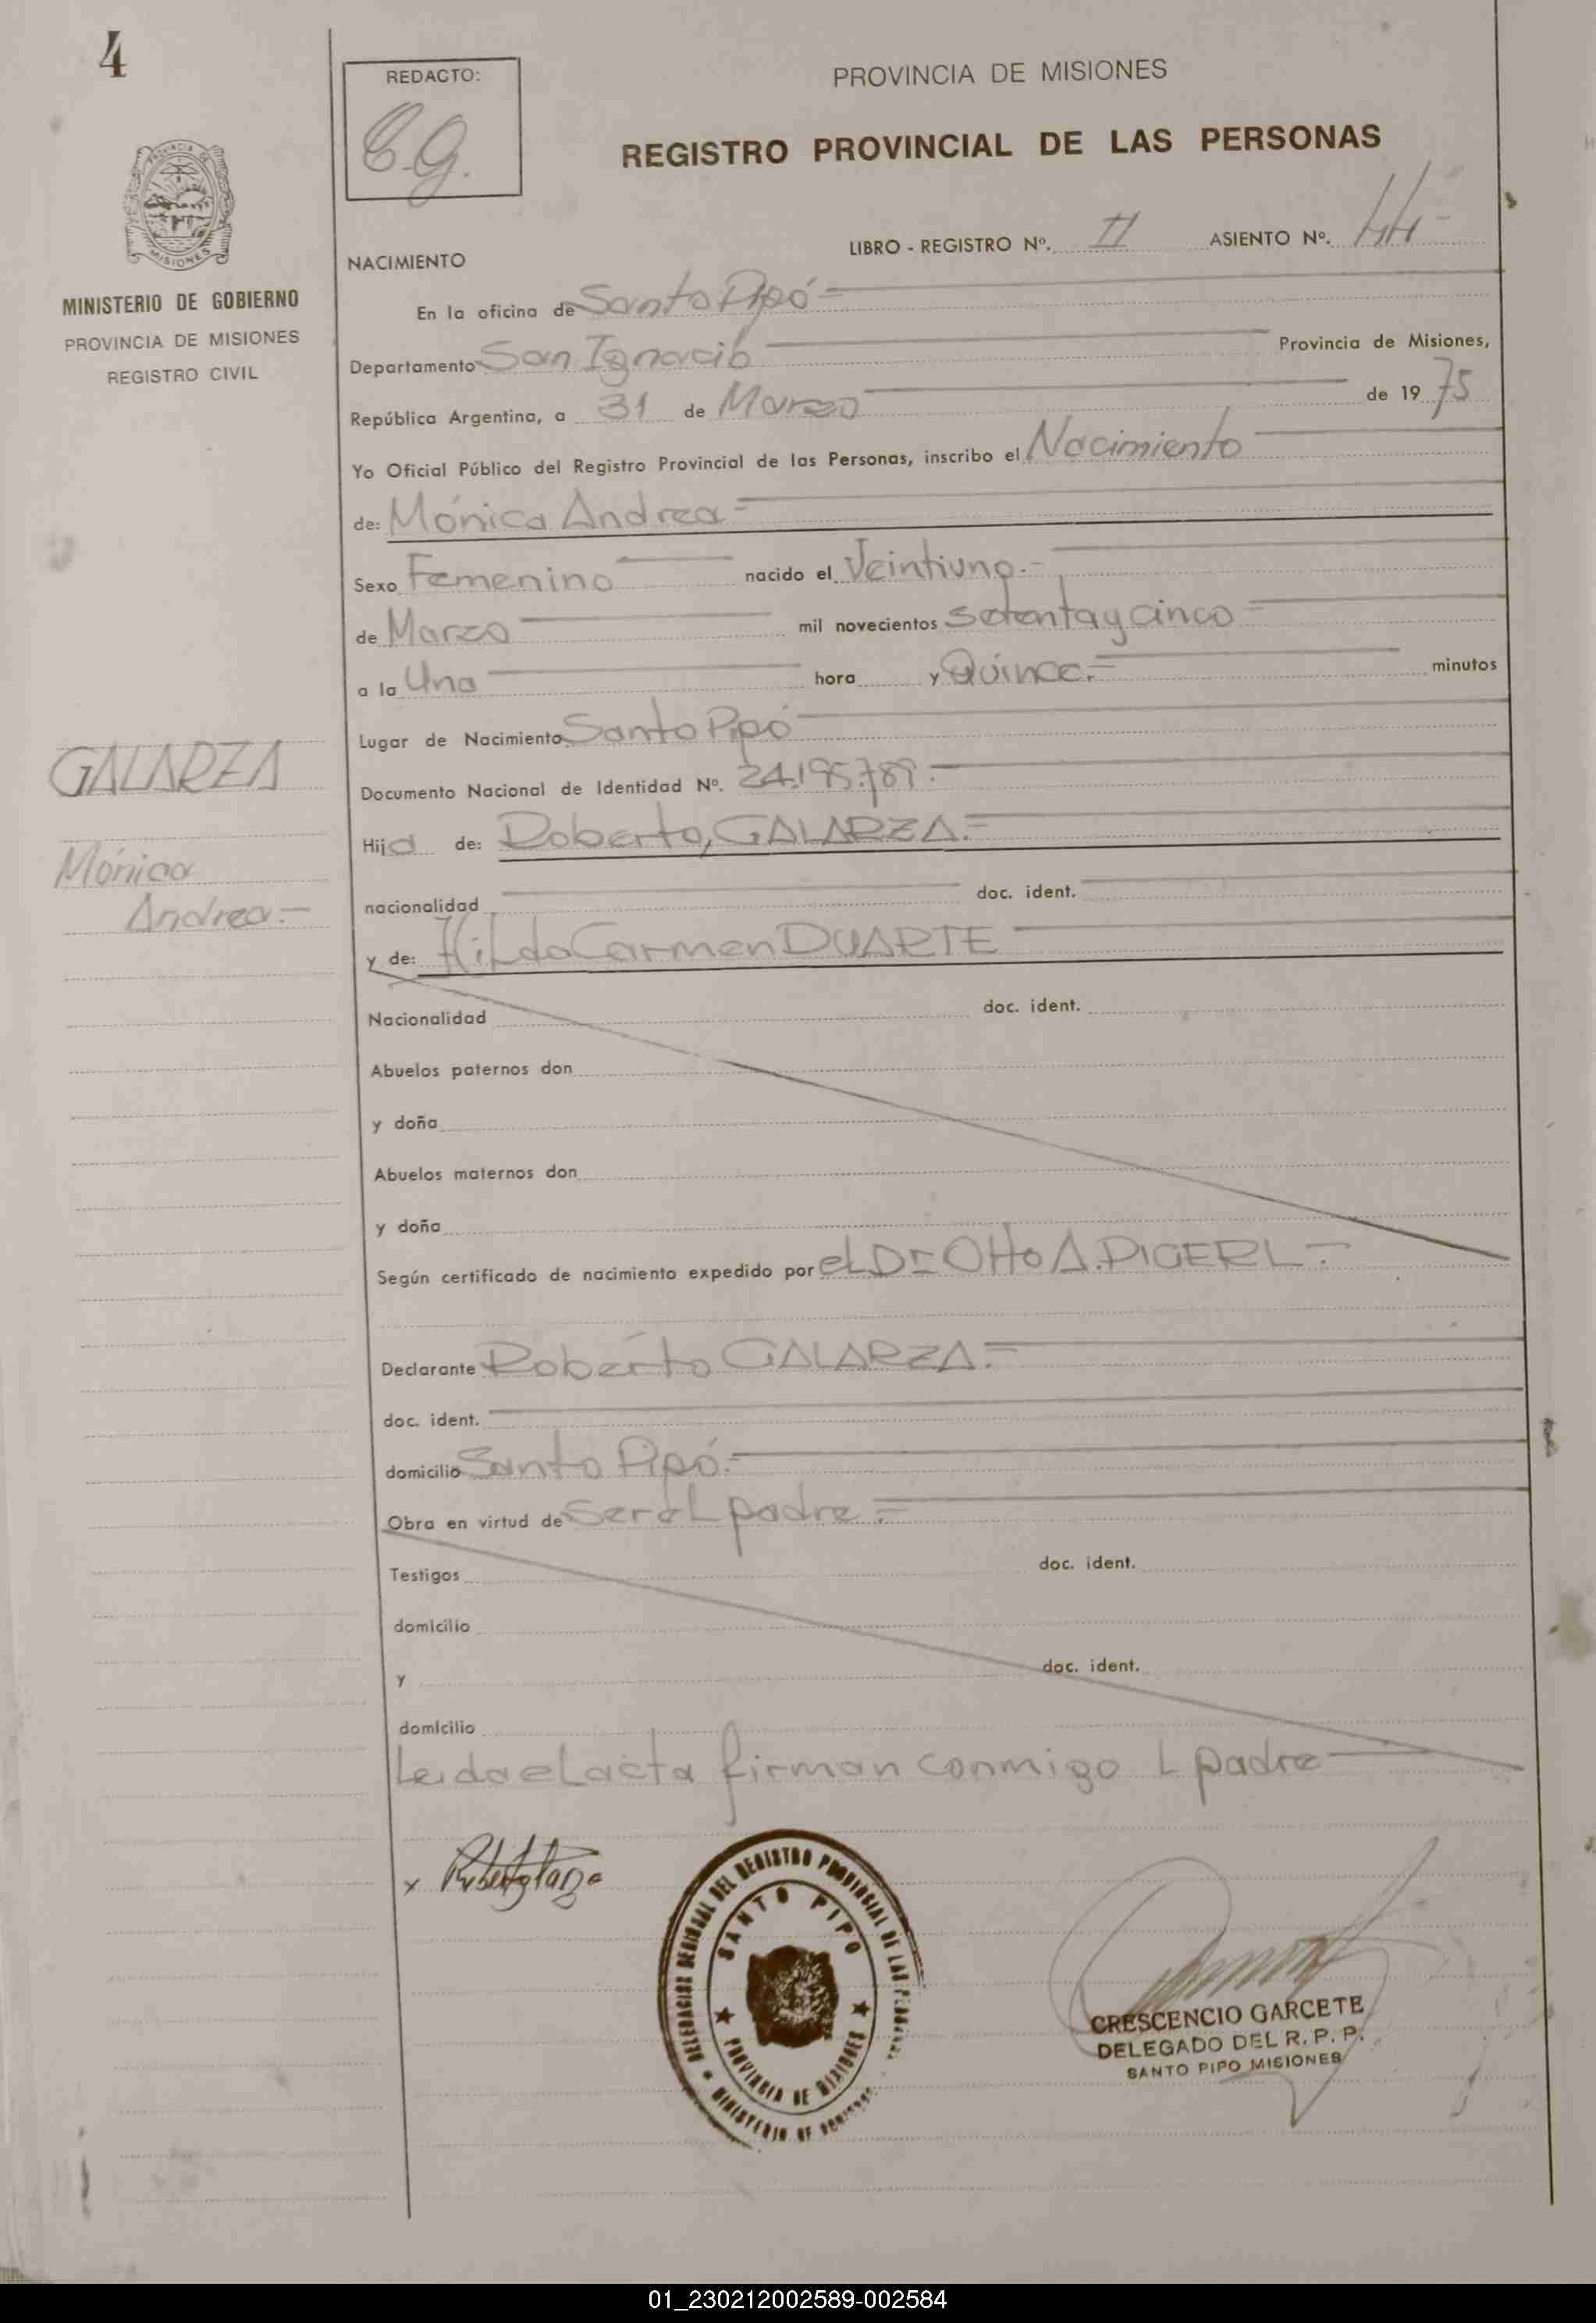 4
REDACTO:
C.G.
PROVINCIA DE MISIONES
REGISTRO PROVINCIAL DE LAS PERSONAS
LIBRO - REGISTRO Nº. II ASIENTO Nº. 44-
NACIMIENTO
MISIONES
MINISTERIO DE GOBIERNO
PROVINCIA DE MISIONES
REGISTRO CIVIL
En la oficina de Santo Pipó-
Departamento San Ignacio Provincia de Misiones,
República Argentina, a 31 de Marzo de 1975
Yo Oficial Público del Registro Provincial de las Personas, inscribo el Nacimiento
de: Mónica Andrea-
Sexo Femenino nacido el Veintiuno.-
de Marzo mil novecientos setenta y cinco
a la Una hora y Quince.= minutos
Lugar de Nacimiento Santo Pipó
GALARZA
Mónica
Andrea.-
Documento Nacional de Identidad Nº. 24.195.789.-
Hija de: Roberto, GALARZA.=
nacionalidad doc. ident.
y de: Hilda Carmen DUARTE
Nacionalidad doc. ident.
Abuelos paternos don
y doña
Abuelos maternos don
y doña
Según certificado de nacimiento expedido por el Dr Otto A. PIGERL.-
Declarante Roberto GALARZA.=
doc. ident.
domicilio Santo Pipó.=
Obra en virtud de ser el padre.=
Testigos doc. ident.
domicilio
y doc. ident.
domicilio
Leida el acta firman conmigo L padre
x
DELEGACION REGIONAL DEL REGISTRO PROVINCIAL DE LAS PERSONAS
SANTO PIPO
PROVINCIA DE MISIONES
MINISTERIO DE GOBIERNO
CRESCENCIO GARCETE
DELEGADO DEL R. P. P.
SANTO PIPO MISIONES
01_230212002589-002584